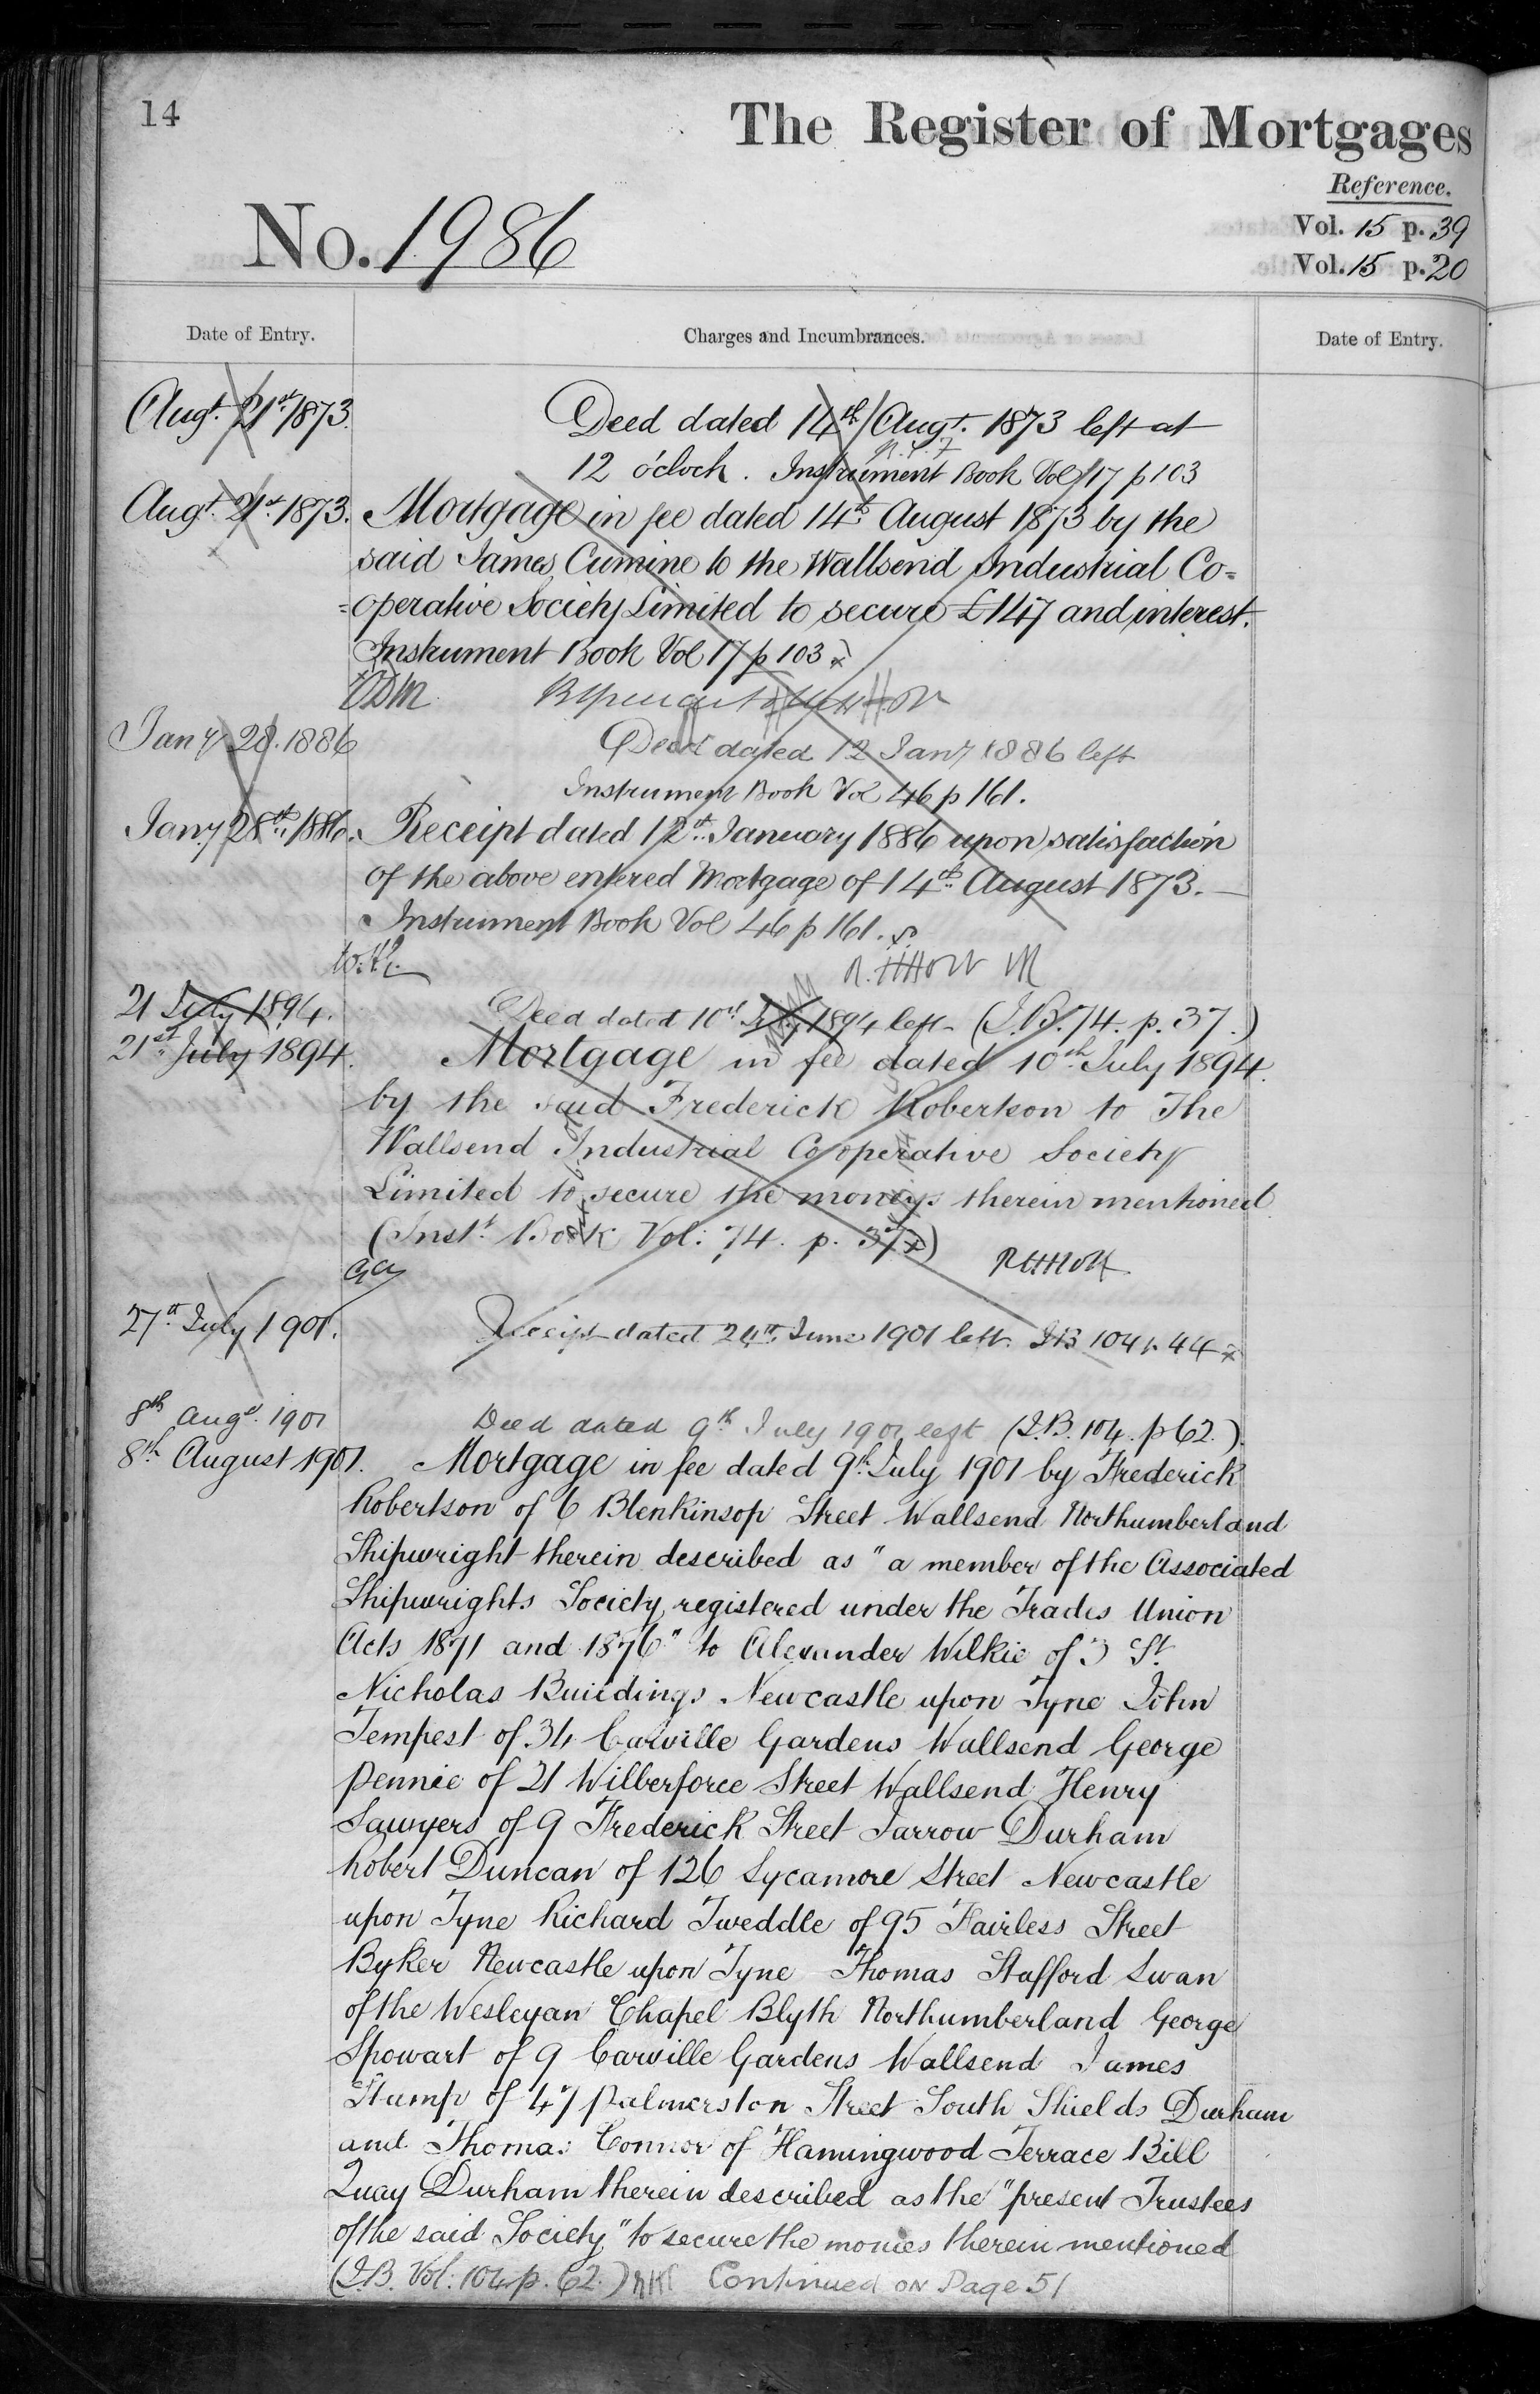 14
The Register of Mortgages
Reference.
No. 1986
Vol. 15 p. 39
Vol. 15 p. 20
Date of Entry.
Charges and Incumbrances.
Date of Entry.
Augt. 21st. 1873.
Deed dated 14th Augt. 1873 left at
12 o'clock. Instrument Book Vol 17 p 103
Augt. 21st. 1873.
Mortgage in fee dated 14th August 1873 by the
said James Cumine to the Wallsend Industrial Co=
=operative Society Limited to secure £147 and interest.
Instrument Book Vol 17 p 103
Jany 28. 1886
Deed dated 12 Jany 1886 left
Instrument Book Vol 46 p 161.
Jany 28th. 1886.
Receipt dated 12th. January 1886 upon satisfaction
of the above entered Mortgage of 14th. August 1873.
Instrument Book Vol 46 p 161.
21 July 1894.
Deed dated 10th July 1894 left (I.B. 74. p. 37.)
21st. July 1894.
Mortgage in fee dated 10th. July 1894.
by the said Frederick Robertson to The
Wallsend Industrial Cooperative Society
Limited to secure the moneys therein mentioned
(Inst. Book Vol: 74. p. 37)
27th July 1901.
Receipt dated 24th. June 1901 left. I.B 104 p. 44
8th Augt. 1901
Deed dated 9th July 1901 left (I.B. 104. p 62.).
8th August 1901.
Mortgage in fee dated 9th. July 1901 by Frederick
Robertson of 6 Blenkinsop Street Wallsend Northumberland
Shipwright therein described as "a member of the Associated
Shipwrights Society registered under the Trades Union
Acts 1871 and 1876" to Alexander Wilkie of 3 St.
Nicholas Buildings Newcastle upon Tyne John
Tempest of 34 Carville Gardens Wallsend George
Pennie of 21 Wilberforce Street Wallsend Henry
Sawyers of 9 Frederick Street Jarrow Durham
Robert Duncan of 126 Sycamore Street Newcastle
upon Tyne Richard Tweddle of 95 Fairless Street
Byker Newcastle upon Tyne Thomas Stafford Swan
of the Wesleyan Chapel Blyth Northumberland George
Spowart of 9 Carville Gardens Wallsend James
Stump of 47 Palmerston Street South Shields Durham
and Thomas Connor of Hamingwood Terrace Bill
Quay Durham therein described as the "present Trustees
of the said Society" to secure the monies therein mentioned
(I.B. Vol: 104 p. 62.) Continued on Page 51